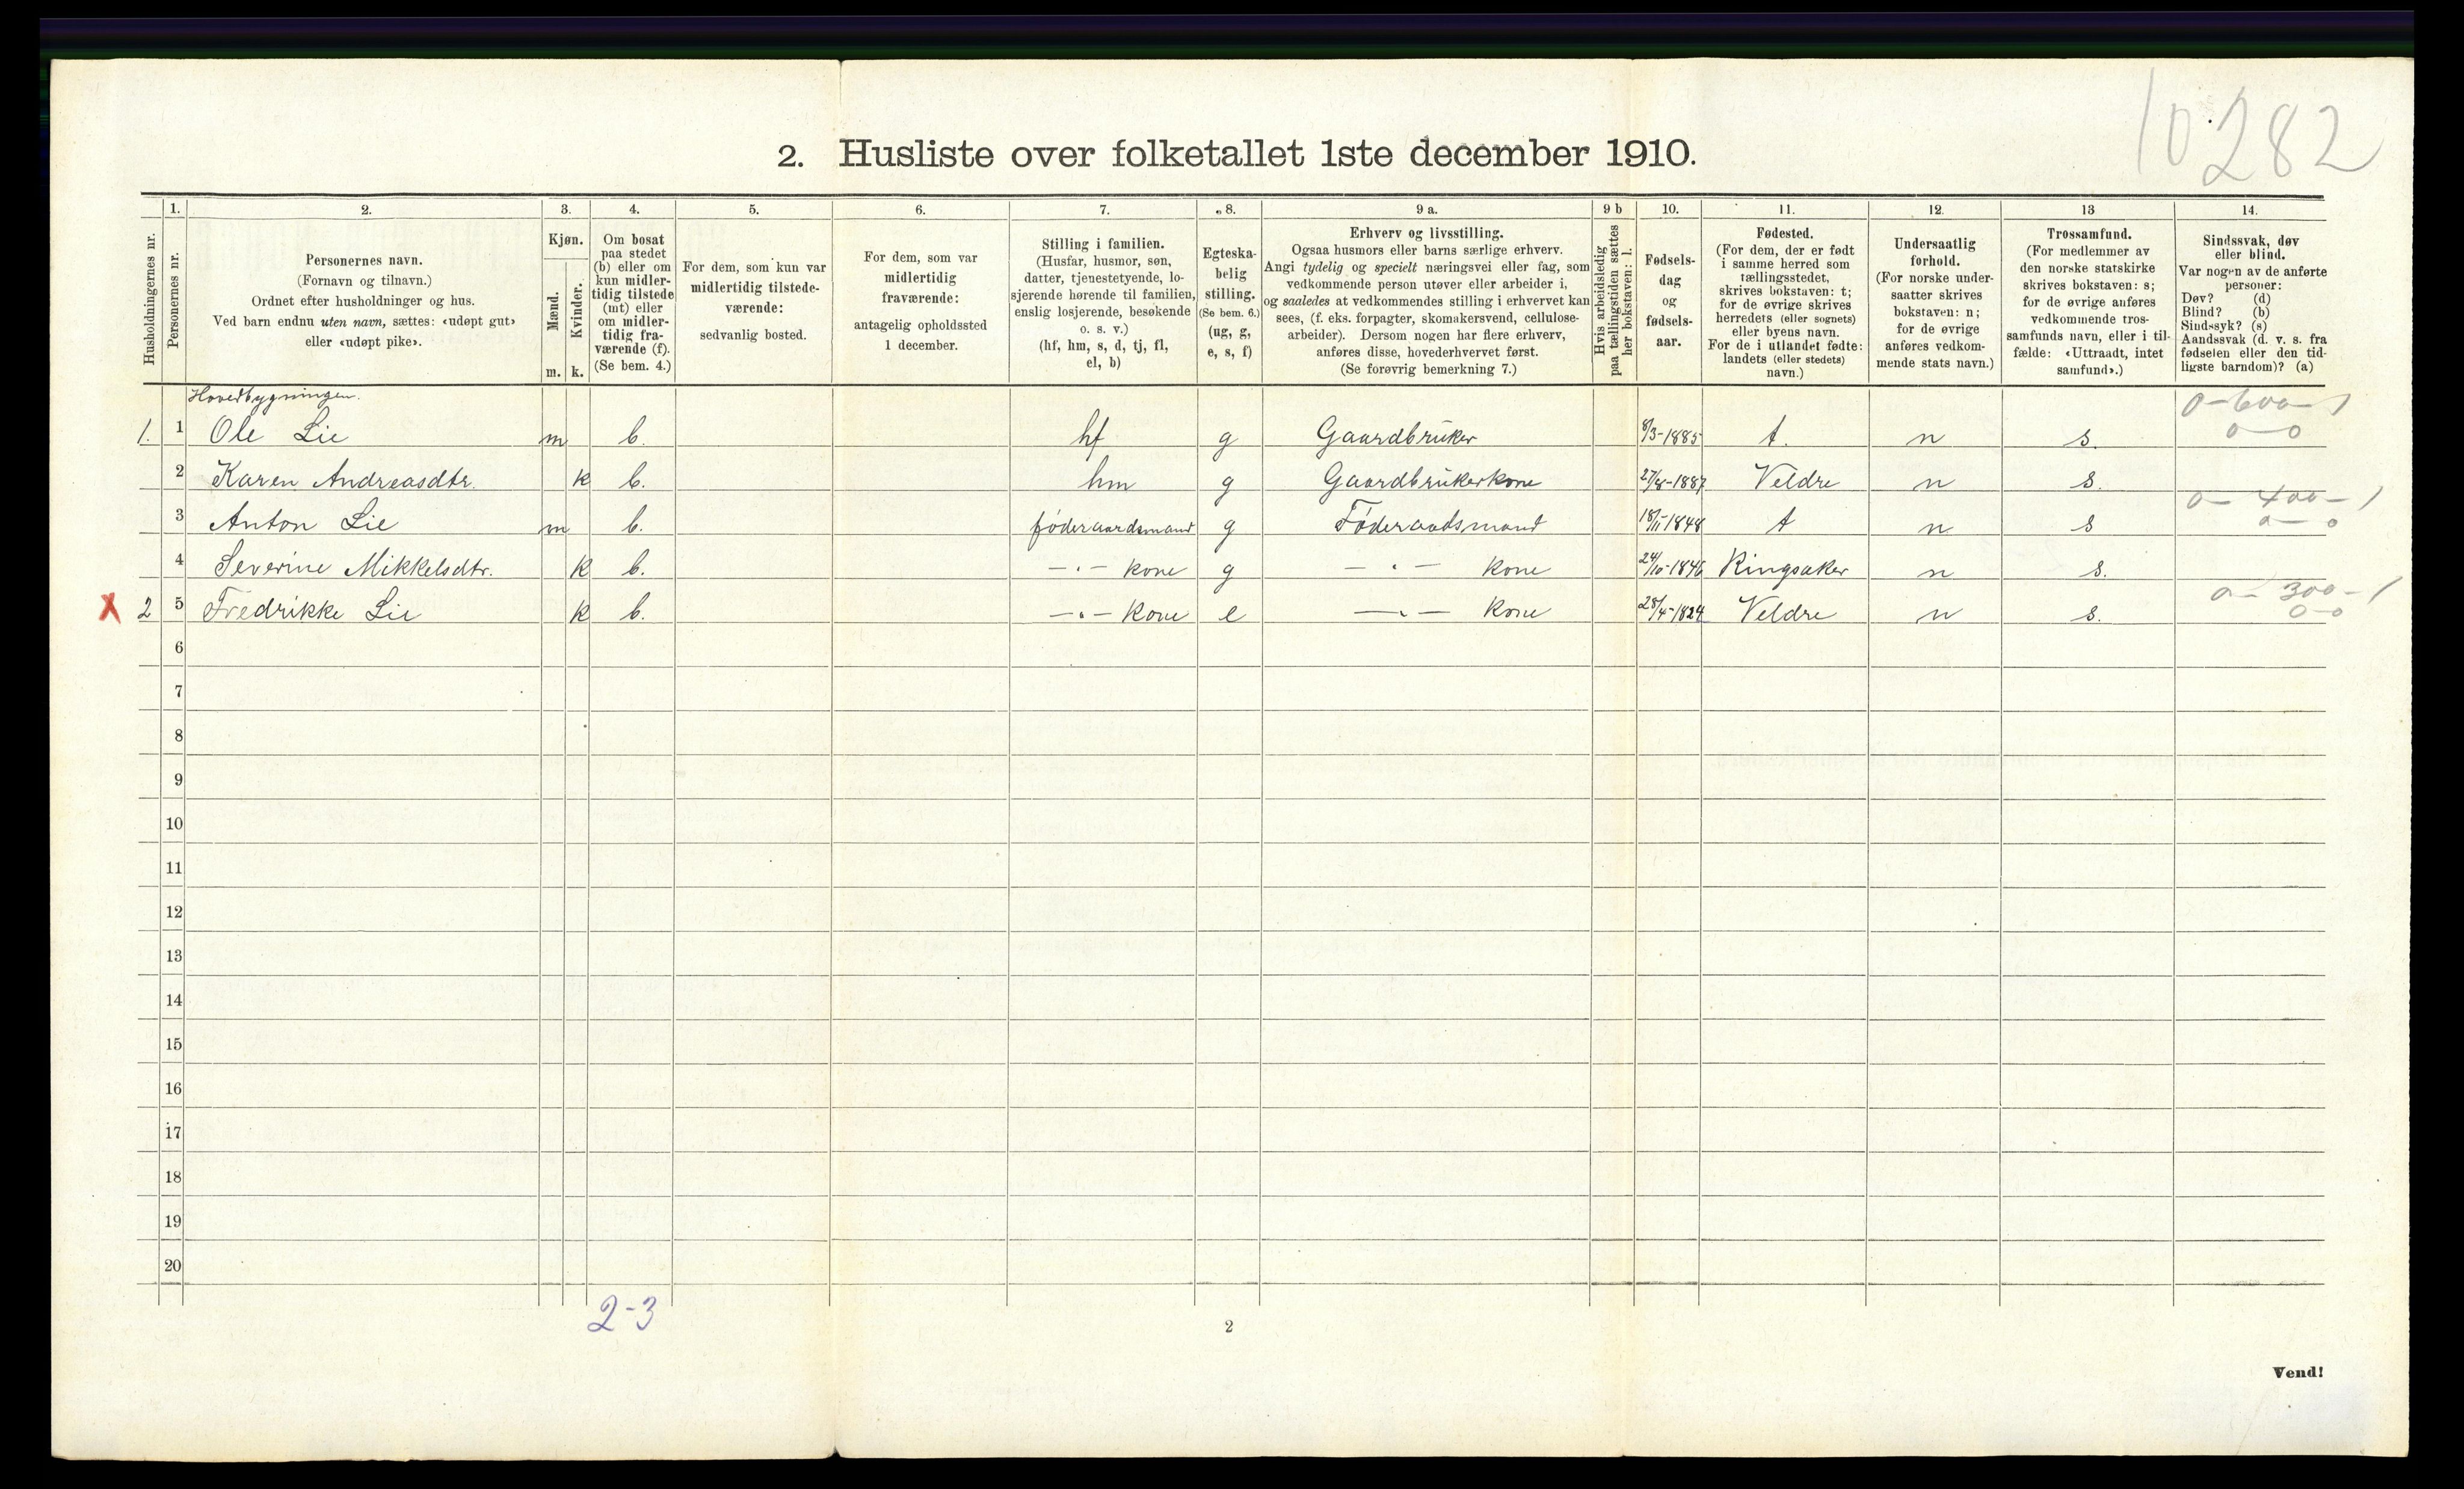 10282
2. Husliste over folketallet 1ste december 1910.
Husholdningernes nr.
1. Personernes nr.
2. Personernes navn.
(Fornavn og tilnavn.)
Ordnet efter husholdninger og hus.
Ved barn endnu uten navn, sættes: «udøpt gut»
eller «udøpt pike».
3. Kjøn.
Mænd. Kvinder.
m. k.
4. Om bosat
paa stedet
(b) eller om
kun midler-
tidig tilstede
(mt) eller
om midler-
tidig fra-
værende (f).
(Se bem. 4.)
5. For dem, som kun var
midlertidig tilstede-
værende:
sedvanlig bosted.
6. For dem, som var
midlertidig
fraværende:
antagelig opholdssted
1 december.
7. Stilling i familien.
(Husfar, husmor, søn,
datter, tjenestetyende, lo-
sjerende hørende til familien,
enslig losjerende, besøkende
o. s. v.)
(hf, hm, s, d, tj, fl,
el, b)
8. Egteska-
belig
stilling.
(Se bem. 6.)
(ug, g,
e, s, f)
9 a. Erhverv og livsstilling.
Ogsaa husmors eller barns særlige erhverv.
Angi tydelig og specielt næringsvei eller fag, som
vedkommende person utøver eller arbeider i,
og saaledes at vedkommendes stilling i erhvervet kan
sees, (f. eks. forpagter, skomakersvend, cellulose-
arbeider). Dersom nogen har flere erhverv,
anføres disse, hovederhvervet først.
(Se forøvrig bemerkning 7.)
9 b Hvis arbeidsledig
paa tællingstiden sættes
her bokstaven: l.
10. Fødsels-
dag
og
fødsels-
aar.
11. Fødested.
(For dem, der er født
i samme herred som
tællingsstedet,
skrives bokstaven: t;
for de øvrige skrives
herredets (eller sognets)
eller byens navn.
For de i utlandet fødte:
landets (eller stedets)
navn.)
12. Undersaatlig
forhold.
(For norske under-
saatter skrives
bokstaven: n;
for de øvrige
anføres vedkom-
mende stats navn.)
13 Trossamfund.
(For medlemmer av
den norske statskirke
skrives bokstaven: s;
for de øvrige anføres
vedkommende tros-
samfunds navn, eller i til-
fælde: «Uttraadt, intet
samfund».)
14. Sindssvak, døv
eller blind.
Var nogen av de anførte
personer:
Døv? (d)
Blind? (b)
Sindssyk? (s)
Aandssvak (d. v. s. fra
fødselen eller den tid-
ligste barndom)? (a)
Hovedbygningen.
1. 1 Ole Lie m b. hf g Gaardbruker 8/3-1885 t. n s. 0-600-1
0-0
2 Karen Andreasdtr. k b. hm g Gaardbrukerkone 27/8-1887 Veldre n s.
3 Anton Lie m b. føderaadsmand g Føderaadsmand 18/11-1848 t n s 0-400-1
0-0
4 Severine Mikkelsdtr. k b. -"- kone g -"- kone 24/10-1846 Ringsaker n s.
X 2 5 Fredrikke Lie k b. -"- kone e -"- kone 28/4-1824 Veldre n s. 0-300-1
0-0
6
7
8
9
10
11
12
13
14
15
16
17
18
19
20
2-3
2
Vend!